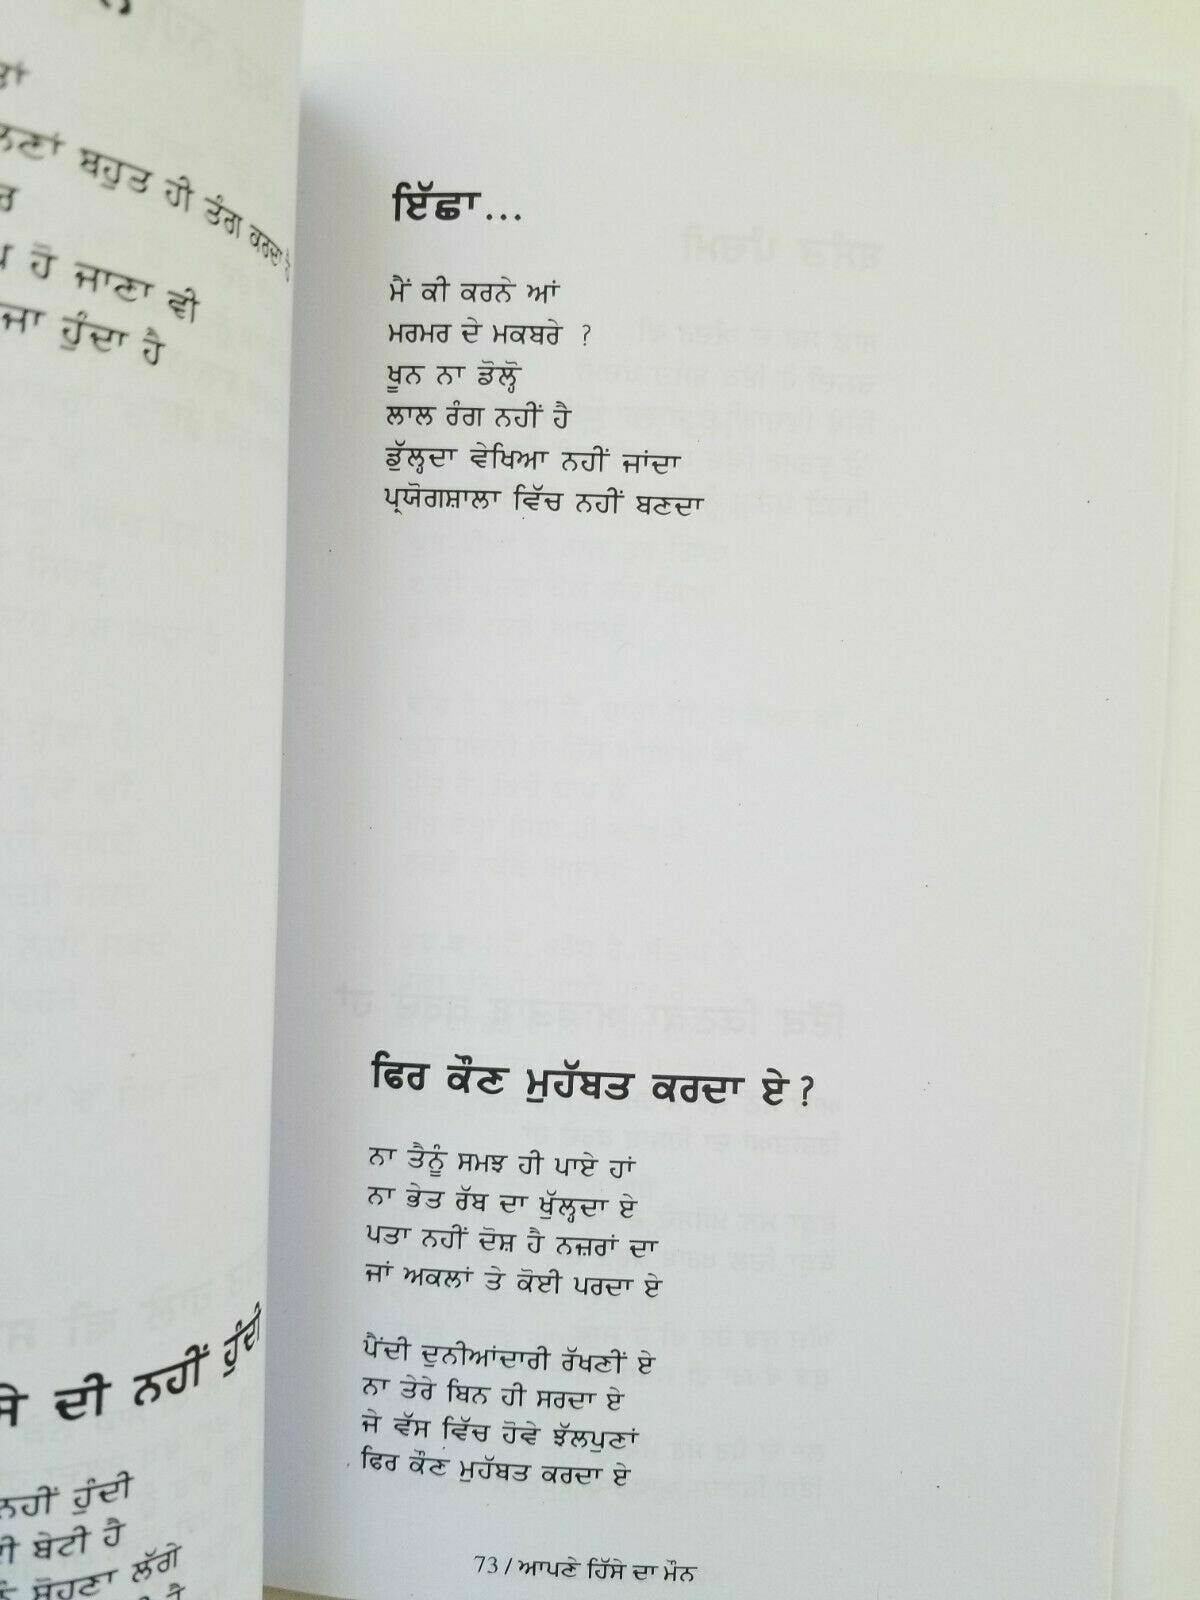 ਬਹੁਤ ਹੀ ਤੰਗ ਕਰਦਾ ਹੈ
ਹੋ ਜਾਣਾ ਵੀ
ਹੁੰਦਾ ਹੈ
ਦੀ ਨਹੀਂ ਹੁੰਦੀ
ਨਹੀਂ ਹੁੰਦੀ
ਬੇਟੀ ਹੈ
ਸੋਹਣਾ ਲੱਗੇ
ਇੱਛਾ...
ਮੈਂ ਕੀ ਕਰਨੇ ਆਂ
ਮਰਮਰ ਦੇ ਮਕਬਰੇ ?
ਖੂਨ ਨਾ ਡੋਲ੍ਹੋ
ਲਾਲ ਰੰਗ ਨਹੀਂ ਹੈ
ਡੁੱਲ੍ਹਦਾ ਵੇਖਿਆ ਨਹੀਂ ਜਾਂਦਾ
ਪ੍ਰਯੋਗਸ਼ਾਲਾ ਵਿੱਚ ਨਹੀਂ ਬਣਦਾ
ਫਿਰ ਕੌਣ ਮੁਹੱਬਤ ਕਰਦਾ ਏ ?
ਨਾ ਤੈਨੂੰ ਸਮਝ ਹੀ ਪਾਏ ਹਾਂ
ਨਾ ਭੇਤ ਰੱਬ ਦਾ ਖੁੱਲ੍ਹਦਾ ਏ
ਪਤਾ ਨਹੀਂ ਦੋਸ਼ ਹੈ ਨਜ਼ਰਾਂ ਦਾ
ਜਾਂ ਅਕਲਾਂ ਤੇ ਕੋਈ ਪਰਦਾ ਏ
ਪੈਂਦੀ ਦੁਨੀਆਂਦਾਰੀ ਰੱਖਣੀਂ ਏ
ਨਾ ਤੇਰੇ ਬਿਨ ਹੀ ਸਰਦਾ ਏ
ਜੇ ਵੱਸ ਵਿੱਚ ਹੋਵੇ ਝੱਲਪੁਣਾਂ
ਫਿਰ ਕੌਣ ਮੁਹੱਬਤ ਕਰਦਾ ਏ
73 / ਆਪਣੇ ਹਿੱਸੇ ਦਾ ਮੌਨ